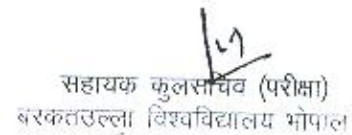 सहायक कुलसचिव (परीक्षा)
बरकतउल्ला विश्वविद्यालय भोपाल